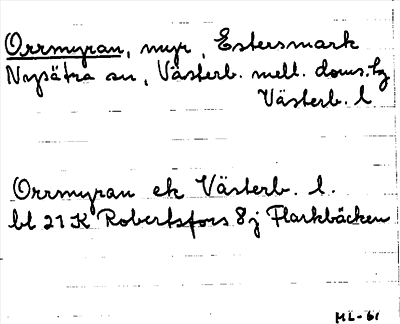 Orrmyran, myr, Estersmark
Nysätra sn, Västerb. mell. doms. hg
Västerb. l
Orrmyran ek Västerb. l.
bl 21 K Robertsfors 8j Flarkbäcken
ML-61